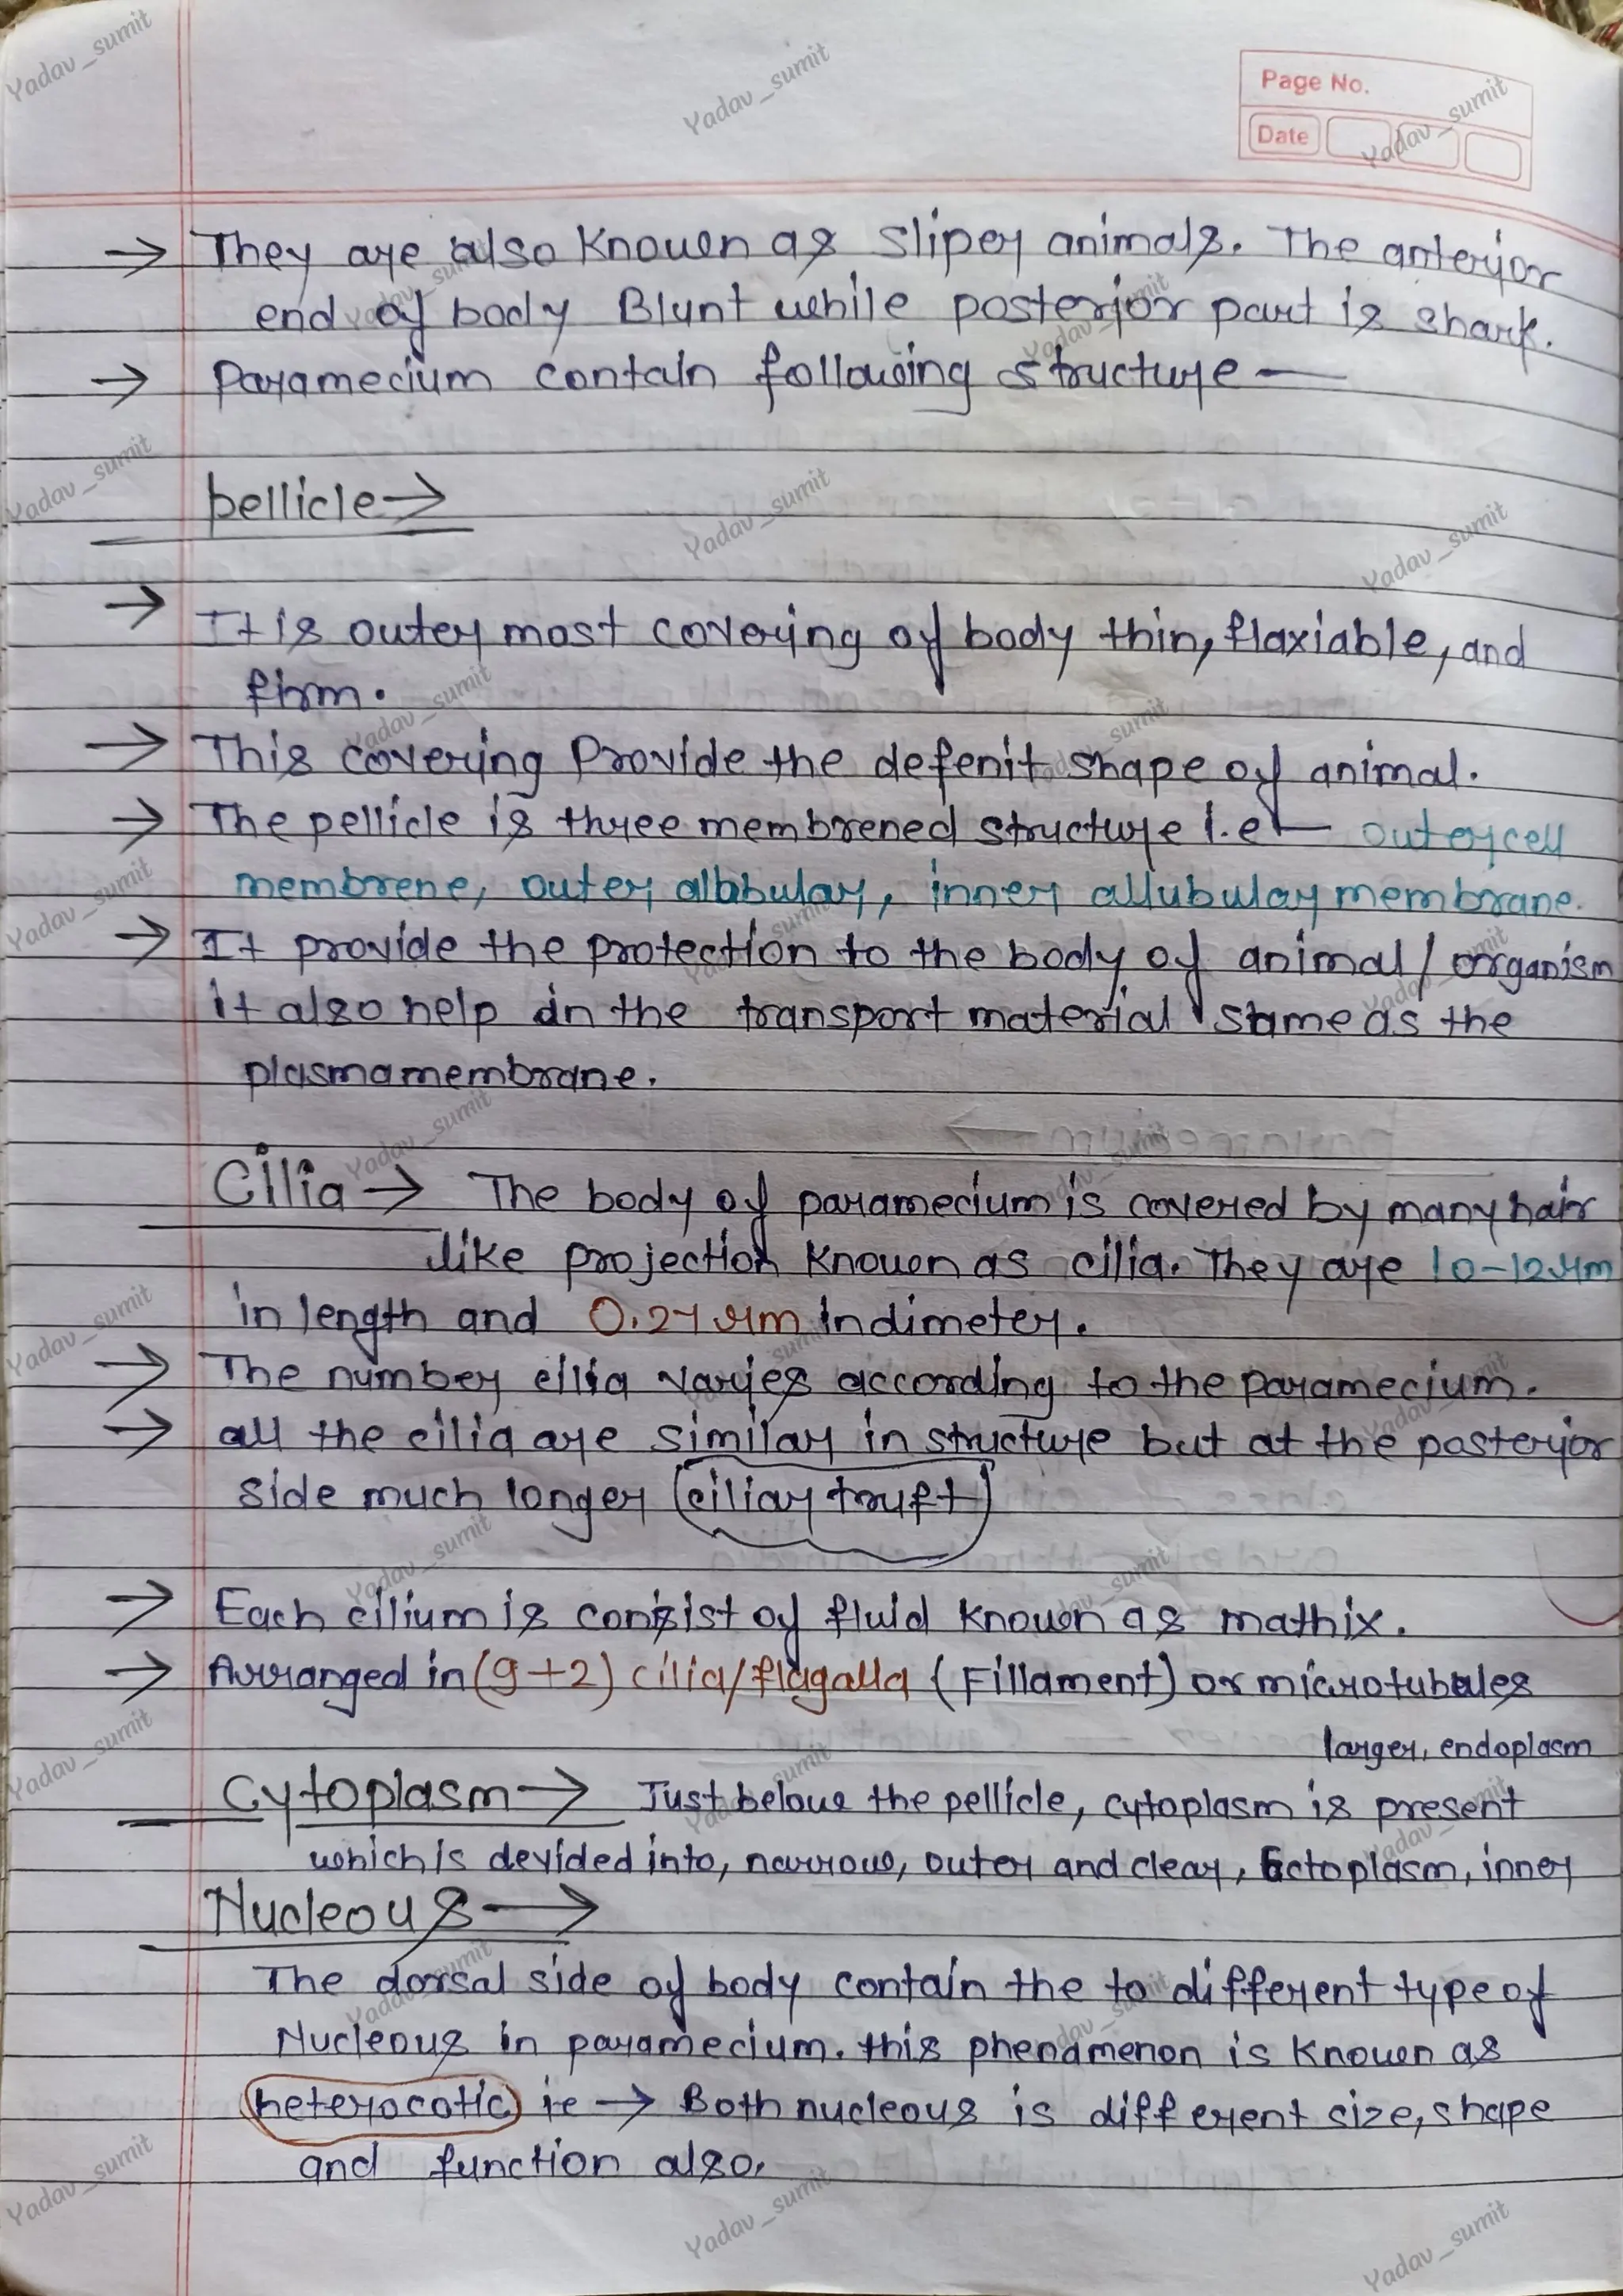 Page No.
Date
→ They are also Knowen as Sliper animals. The anterior
end of body Blunt while posterior part is shark.
→ Paramecium contain following structure —
pellicle →
→ It is outer most covering of body thin, flaxiable, and
firm.
→ This covering Provide the defenit shape of animal.
→ The pellicle is three membrened structure i.e — outer cell
membrene, outer alubular, inner allubular membrane.
→ It provide the protection to the body of animal / organism
it also help in the transport material same as the
plasmamembrane.
Cilia → The body of paramecium is covered by many hair
like projection Knowen as cilia. They are 10-12 μm
in length and 0.27 μm in dimeter.
→ The number cilia varies according to the paramecium.
→ all the cilia are similar in structure but at the posterior
side much longer (ciliary truft)
→ Each cilium is consist of fluid Known as mathix.
→ Arranged in (9+2) cilia/flagalla (Fillament) or microtubules
larger, endoplasm
Cytoplasm → Just below the pellicle, cytoplasm is present
which is devided into, narrow, outer and clear, Ectoplasm, inner
Nucleous →
The dorsal side of body contain the to different type of
Nucleous in paramecium. this phenamenon is Knowen as
heterocotic ie → Both nucleous is different size, shape
and function also.
Yadav_sumit